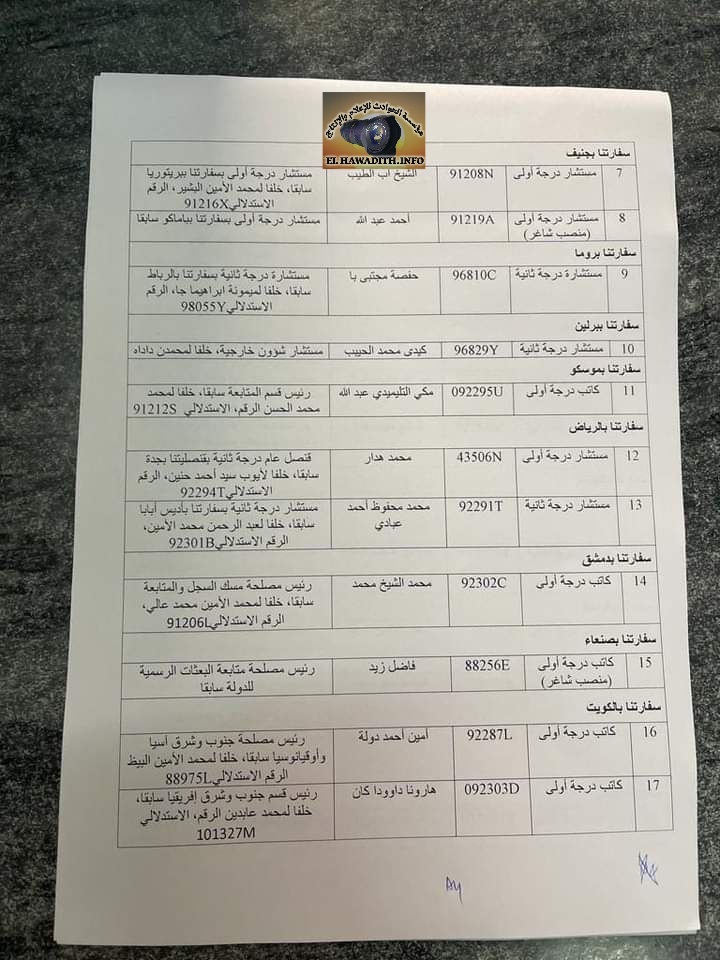 مؤسسة الحوادث للإعلام والإنتاج
EL HAWADITH.INFO
سفارتنا بجنيف
7 مستشار درجة أولى 91208N الشيخ اب الطيب مستشار درجة أولى بسفارتنا ببريتوريا
سابقا، خلفا لمحمد الأمين البشير، الرقم
الاستدلالي91216X
8 مستشار درجة أولى 91219A أحمد عبد الله مستشار درجة أولى بسفارتنا بباماكو سابقا
(منصب شاغر)
سفارتنا بروما
9 مستشارة درجة ثانية 96810C حفصة مجتبى با مستشارة درجة ثانية بسفارتنا بالرباط
سابقا، خلفا لميمونة ابراهيما جا، الرقم
الاستدلالي98055Y
سفارتنا ببرلين
10 مستشار درجة ثانية 96829Y كيدى محمد الحبيب مستشار شؤون خارجية، خلفا لمحمدن داداه
سفارتنا بموسكو
11 كاتب درجة أولى 092295U مكي التليميدي عبد الله رئيس قسم المتابعة سابقا، خلفا لمحمد
محمد الحسن الرقم، الاستدلالي 91212S
سفارتنا بالرياض
12 مستشار درجة أولى 43506N محمد هدار قنصل عام درجة ثانية بقنصليتنا بجدة
سابقا، خلفا لأيوب سيد أحمد حنين، الرقم
الاستدلالي92294T
13 مستشار درجة ثانية 92291T محمد محفوظ أحمد مستشار درجة ثانية بسفارتنا بأديس أبابا
عبادي سابقا، خلفا لعبد الرحمن محمد الأمين،
الرقم الاستدلالي92301B
سفارتنا بدمشق
14 كاتب درجة أولى 92302C محمد الشيخ محمد رئيس مصلحة مسك السجل والمتابعة
سابقا، خلفا لمحمد الأمين محمد عالي،
الرقم الاستدلالي91206L
سفارتنا بصنعاء
15 كاتب درجة أولى 88256E فاضل زيد رئيس مصلحة متابعة البعثات الرسمية
(منصب شاغر) للدولة سابقا
سفارتنا بالكويت
16 كاتب درجة أولى 92287L أمين أحمد دولة رئيس مصلحة جنوب وشرق آسيا
وأوقيانوسيا سابقا، خلفا لمحمد الأمين البيظ
الرقم الاستدلالي88975L
17 كاتب درجة أولى 092303D هارونا داوودا كان رئيس قسم جنوب وشرق إفريقيا سابقا،
خلفا لمحمد عابدين الرقم، الاستدلالي
101327M